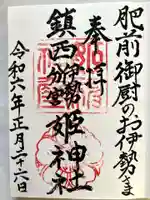 肥前御厨のお伊勢さま
奉拝
鎮西伊勢分霊
姫神社
令和六年正月二十六日